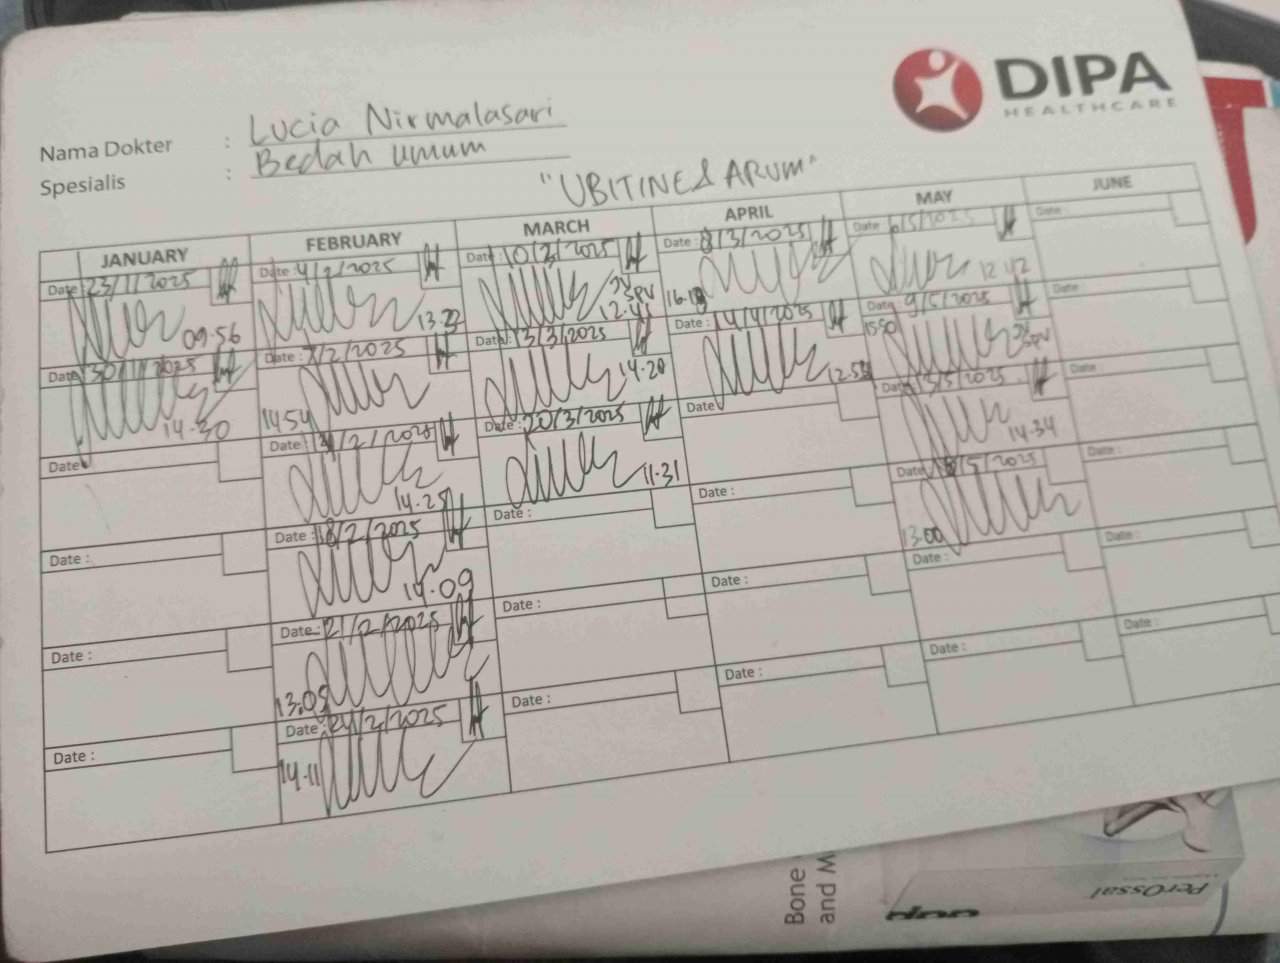 DIPA
HEALTHCARE
Nama Dokter : Lucia Nirmalasari
Spesialis : Bedah umum
"UBITINE & ARUM"
JANUARY FEBRUARY MARCH APRIL MAY JUNE
Date : 23/1/2025 Date : 4/2/2025 Date : 10/3/2025 Date : 8/3/2025 Date : 6/5/2025 Date :
09.56 13.22 JV SPV 12.41 16.18 12.42
Date : 30/1/2025 Date : 7/2/2025 Date : 13/3/2025 Date : 14/4/2025 Date : 9/5/2025 Date :
14.30 14.54 14.20 12.53 15.50 SPV
Date : Date : /2/2025 Date : 20/3/2025 Date : Date : 13/5/2025 Date :
14.25 11.31 14.34
Date : Date : 18/2/2025 Date : Date : Date : /5/2025 Date :
14.09 13.00
Date : Date : 21/2/2025 Date : Date : Date : Date :
13.05
Date : Date : 24/2/2025 Date : Date : Date : Date :
14.11
Bone
and M
PerOssal